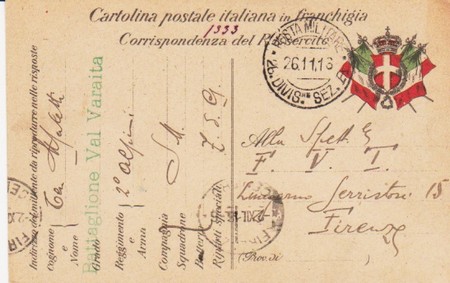 Cartolina postale italiana in franchigia
1333
Corrispondenza del R. Esercito
POSTA MILITARE
26.11.16
26. DIVIS.NE SEZ. B
Indirizzo del mittente da riprodurre nelle risposte
Cognome e Nome
Grado
Battaglione Val Varaita
Reggimento e Arma 2° Alpini
Compagnia S. M.
Squadrone
Batteria
Riparti speciali
Alla Spett.
F. V. T.
Lungarno Serristori 15
Firenze
(Prov. di
FIRENZE